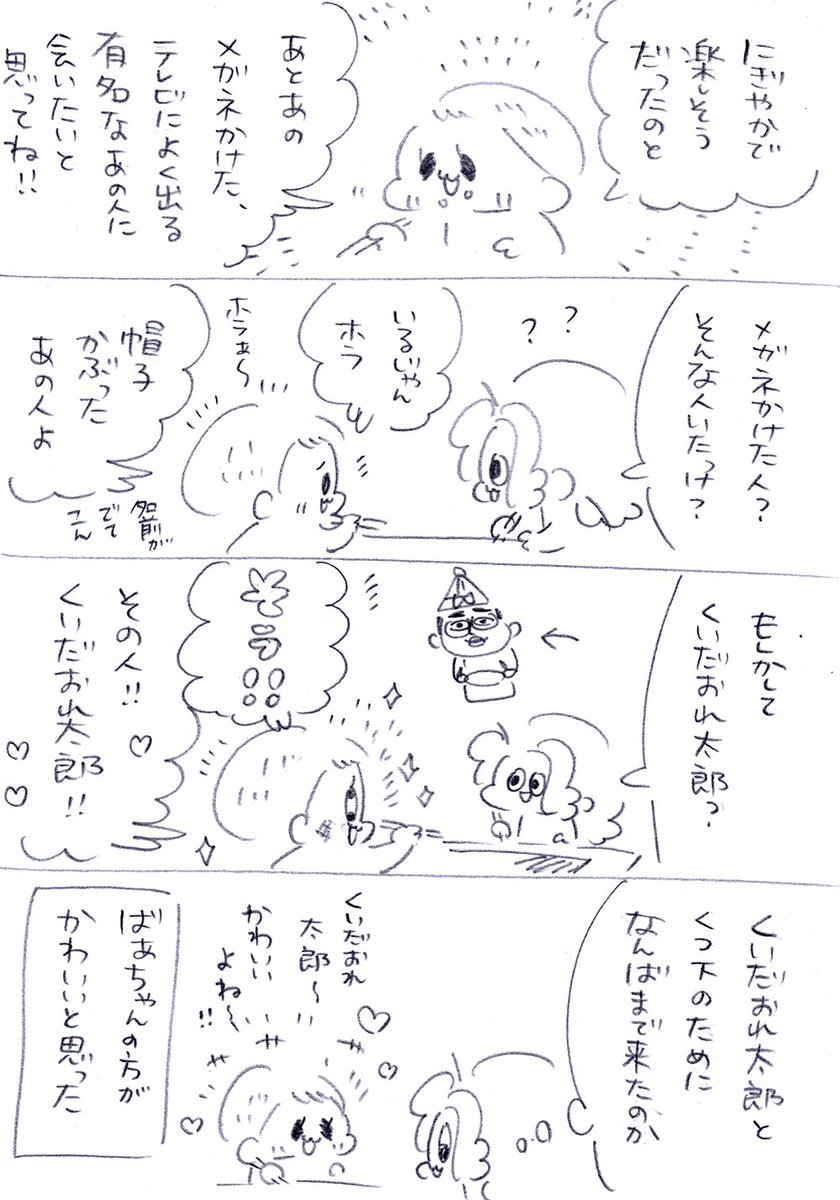 にぎやかで
楽しそう
だったのと
あとあの
メガネかけた、
テレビによく出る
有名なあの人に
会いたいと
思ってね!!
メガネかけた人?
そんな人いたっけ?
??
いるじゃん
ホラ
ホラぁ〜
帽子
かぶった
あの人よ
名前が
でて
こん
もしかして
くいだおれ太郎?
そう!!
その人!!
くいだおれ太郎!!
くいだおれ太郎と
くつ下のために
なんばまで来たのか
くいだおれ
太郎〜
かわいい
よね〜!!
ばあちゃんの方が
かわいいと思った